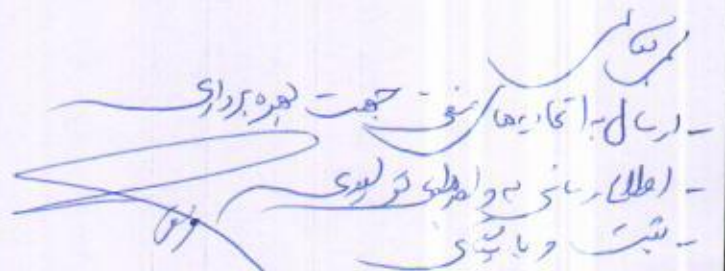 بسمه تعالی
- ارسال به اتحادیه‌های صنفی جهت بهره‌برداری
- اطلاع رسانی به واحدهای تولیدی
- ثبت و بایگانی